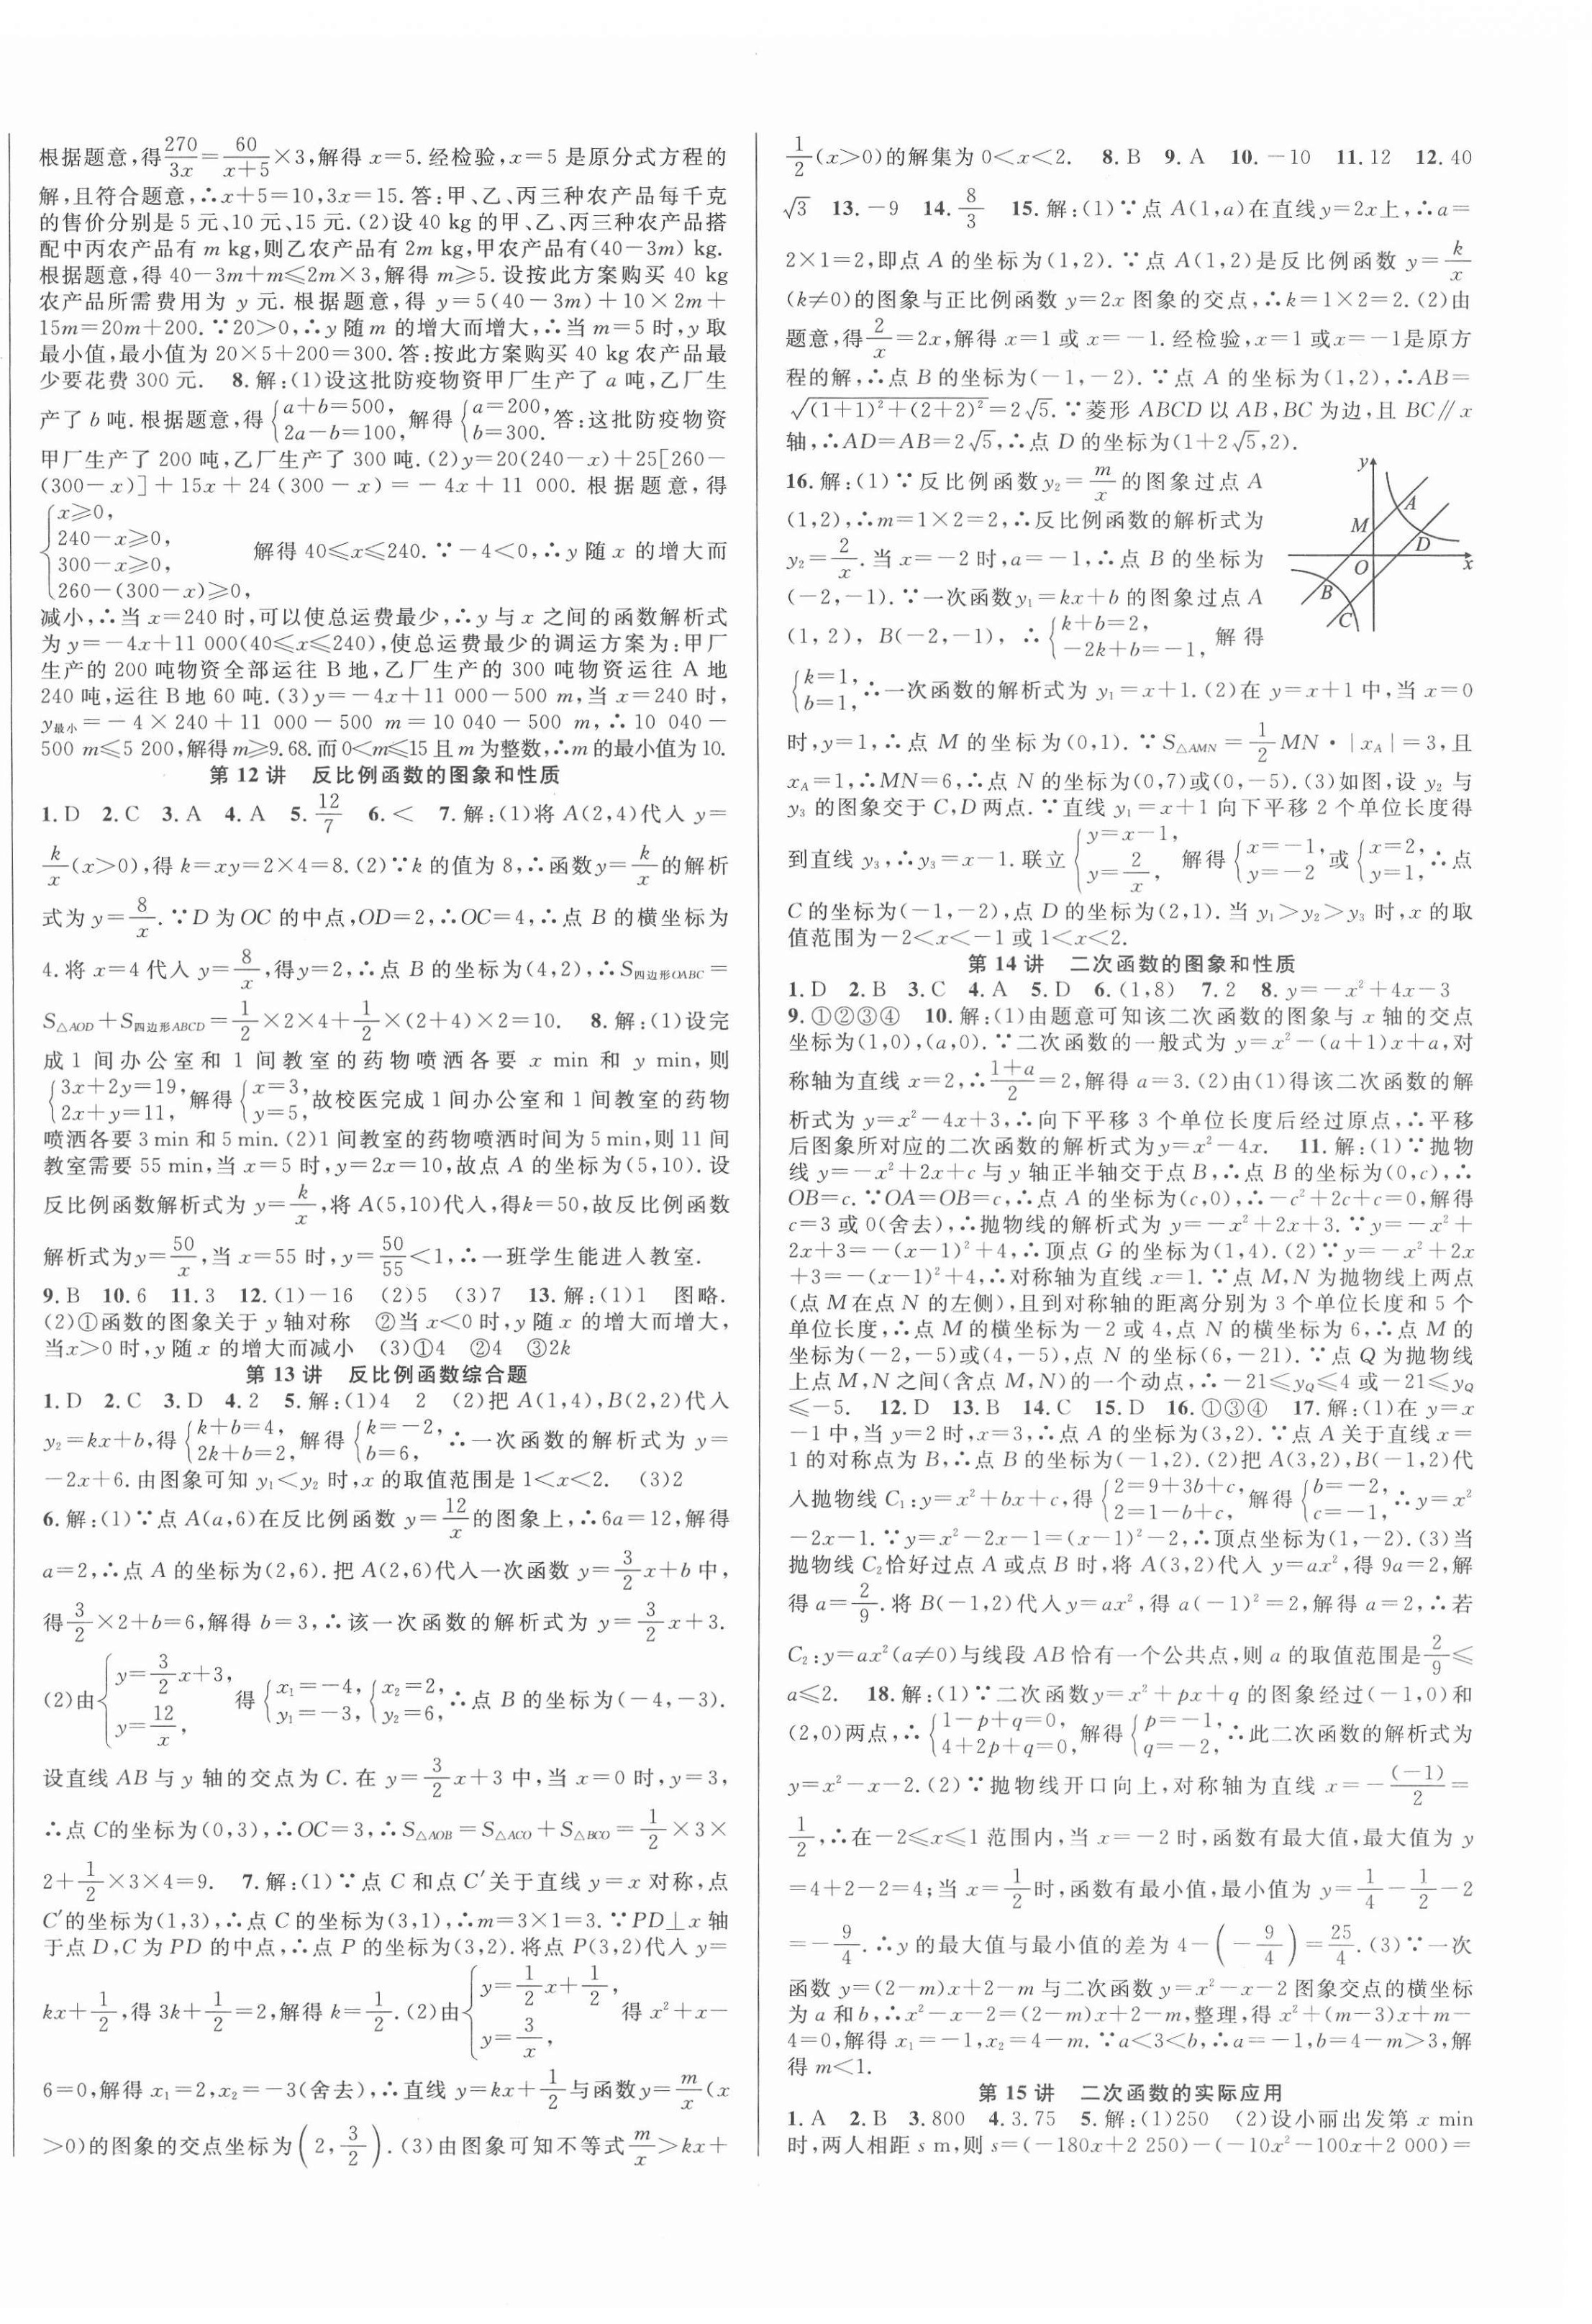 根据题意,得270/3x=60/(x+5)×3,解得 x=5.经检验,x=5 是原分式方程的
解,且符合题意,∴x+5=10,3x=15.答:甲、乙、丙三种农产品每千克
的售价分别是 5 元、10 元、15 元.(2)设 40 kg 的甲、乙、丙三种农产品搭
配中丙农产品有 m kg,则乙农产品有 2m kg,甲农产品有(40-3m) kg.
根据题意,得 40-3m+m≤2m×3,解得 m≥5.设按此方案购买 40 kg
农产品所需费用为 y 元.根据题意,得 y=5(40-3m)+10×2m+
15m=20m+200.∵20>0,∴y 随 m 的增大而增大,∴当 m=5 时,y 取
最小值,最小值为 20×5+200=300.答:按此方案购买 40 kg 农产品最
少要花费 300 元. 8.解:(1)设这批防疫物资甲厂生产了 a 吨,乙厂生
产了 b 吨.根据题意,得{a+b=500, 2a-b=100,解得{a=200, b=300.答:这批防疫物资
甲厂生产了 200 吨,乙厂生产了 300 吨.(2)y=20(240-x)+25[260-
(300-x)]+15x+24(300-x)=-4x+11 000.根据题意,得
{x≥0,
240-x≥0,
300-x≥0, 解得 40≤x≤240.∵-4<0,∴y 随 x 的增大而
260-(300-x)≥0,
减小,∴当 x=240 时,可以使总运费最少,∴y 与 x 之间的函数解析式
为 y=-4x+11 000(40≤x≤240),使总运费最少的调运方案为:甲厂
生产的 200 吨物资全部运往 B 地,乙厂生产的 300 吨物资运往 A 地
240 吨,运往 B 地 60 吨.(3)y=-4x+11 000-500 m,当 x=240 时,
y最小=-4×240+11 000-500 m=10 040-500 m,∴10 040-
500 m≤5 200,解得m≥9.68.而0<m≤15且m为整数,∴m的最小值为10.
第 12 讲 反比例函数的图象和性质
1.D 2.C 3.A 4.A 5.12/7 6.< 7.解:(1)将 A(2,4)代入 y=
k/x(x>0),得 k=xy=2×4=8.(2)∵k 的值为 8,∴函数y=k/x的解析
式为 y=8/x.∵D 为 OC 的中点,OD=2,∴OC=4,∴点 B 的横坐标为
4.将 x=4 代入 y=8/x,得y=2,∴点 B 的坐标为(4,2),∴S四边形OABC=
S△AOD+S四边形ABCD=1/2×2×4+1/2×(2+4)×2=10. 8.解:(1)设完
成 1 间办公室和 1 间教室的药物喷洒各要 x min 和 y min,则
{3x+2y=19, 2x+y=11,解得{x=3, y=5,故校医完成1间办公室和1间教室的药物
喷洒各要 3 min 和 5 min.(2)1 间教室的药物喷洒时间为 5 min,则 11 间
教室需要 55 min,当 x=5 时,y=2x=10,故点 A 的坐标为(5,10).设
反比例函数解析式为 y=k/x,将 A(5,10)代入,得k=50,故反比例函数
解析式为y=50/x,当 x=55 时,y=50/55<1,∴一班学生能进入教室.
9.B 10.6 11.3 12.(1)-16 (2)5 (3)7 13.解:(1)1 图略.
(2)①函数的图象关于 y 轴对称 ②当 x<0 时,y 随 x 的增大而增大,
当x>0 时,y 随 x 的增大而减小 (3)①4 ②4 ③2k
第 13 讲 反比例函数综合题
1.D 2.C 3.D 4.2 5.解:(1)4 2 (2)把 A(1,4),B(2,2)代入
y₂=kx+b,得{k+b=4, 2k+b=2,解得{k=-2, b=6,∴一次函数的解析式为 y=
-2x+6.由图象可知 y₁<y₂ 时,x 的取值范围是 1<x<2. (3)2
6.解:(1)∵点 A(a,6)在反比例函数 y=12/x的图象上,∴6a=12,解得
a=2,∴点 A 的坐标为(2,6).把 A(2,6)代入一次函数 y=3/2x+b 中,
得3/2×2+b=6,解得 b=3,∴该一次函数的解析式为 y=3/2x+3.
(2)由{y=3/2x+3, y=12/x,得{x₁=-4, y₁=-3,{x₂=2, y₂=6,∴点 B 的坐标为(-4,-3).
设直线 AB 与 y 轴的交点为 C.在 y=3/2x+3 中,当 x=0 时,y=3,
∴点 C的坐标为(0,3),∴OC=3,∴S△AOB=S△ACO+S△BCO=1/2×3×
2+1/2×3×4=9. 7.解:(1)∵点 C 和点 C′关于直线 y=x 对称,点
C′的坐标为(1,3),∴点 C 的坐标为(3,1),∴m=3×1=3.∵PD⊥x 轴
于点 D,C 为 PD 的中点,∴点 P 的坐标为(3,2).将点 P(3,2)代入 y=
kx+1/2,得 3k+1/2=2,解得 k=1/2.(2)由{y=1/2x+1/2, y=3/x,得 x²+x-
6=0,解得 x₁=2,x₂=-3(舍去),∴直线 y=kx+1/2与函数y=m/x(x
>0)的图象的交点坐标为(2,3/2).(3)由图象可知不等式m/x>kx+
1/2(x>0)的解集为 0<x<2. 8.B 9.A 10.-10 11.12 12.40
√3 13.-9 14.8/3 15.解:(1)∵点 A(1,a)在直线y=2x上,∴a=
2×1=2,即点 A 的坐标为(1,2).∵点 A(1,2)是反比例函数 y=k/x
(k≠0)的图象与正比例函数 y=2x 图象的交点,∴k=1×2=2.(2)由
题意,得2/x=2x,解得 x=1 或 x=-1.经检验,x=1 或x=-1是原方
程的解,∴点 B 的坐标为(-1,-2).∵点 A 的坐标为(1,2),∴AB=
√((1+1)²+(2+2)²)=2√5.∵菱形 ABCD 以 AB,BC 为边,且 BC∥x
轴,∴AD=AB=2√5,∴点 D 的坐标为(1+2√5,2).
16.解:(1)∵反比例函数y₂=m/x的图象过点 A
(1,2),∴m=1×2=2,∴反比例函数的解析式为
y₂=2/x.当 x=-2 时,a=-1,∴点 B 的坐标为
(-2,-1).∵一次函数y₁=kx+b 的图象过点 A
(1,2), B(-2,-1), ∴{k+b=2, -2k+b=-1,解得
y
A
M
D
O
x
B
C
{k=1, b=1,∴一次函数的解析式为 y₁=x+1.(2)在 y=x+1 中,当 x=0
时,y=1,∴点 M 的坐标为(0,1).∵S△AMN=1/2MN·|xA|=3,且
xA=1,∴MN=6,∴点 N 的坐标为(0,7)或(0,-5).(3)如图,设 y₂ 与
y₃ 的图象交于 C,D 两点.∵直线 y₁=x+1 向下平移 2 个单位长度得
到直线 y₃,∴y₃=x-1.联立{y=x-1, y=2/x,解得{x=-1, y=-2或{x=2, y=1,∴点
C 的坐标为(-1,-2),点 D 的坐标为(2,1).当 y₁>y₂>y₃ 时,x 的取
值范围为-2<x<-1 或 1<x<2.
第 14 讲 二次函数的图象和性质
1.D 2.B 3.C 4.A 5.D 6.(1,8) 7.2 8.y=-x²+4x-3
9.①②③④ 10.解:(1)由题意可知该二次函数的图象与 x 轴的交点
坐标为(1,0),(a,0).∵二次函数的一般式为 y=x²-(a+1)x+a,对
称轴为直线 x=2,∴(1+a)/2=2,解得 a=3.(2)由(1)得该二次函数的解
析式为 y=x²-4x+3,∴向下平移 3 个单位长度后经过原点,∴平移
后图象所对应的二次函数的解析式为y=x²-4x. 11.解:(1)∵抛物
线 y=-x²+2x+c 与 y 轴正半轴交于点 B,∴点 B 的坐标为(0,c),∴
OB=c.∵OA=OB=c,∴点 A 的坐标为(c,0),∴-c²+2c+c=0,解得
c=3 或 0(舍去),∴抛物线的解析式为 y=-x²+2x+3.∵y=-x²+
2x+3=-(x-1)²+4,∴顶点 G 的坐标为(1,4).(2)∵y=-x²+2x
+3=-(x-1)²+4,∴对称轴为直线 x=1.∵点 M,N 为抛物线上两点
(点 M 在点 N 的左侧),且到对称轴的距离分别为 3 个单位长度和 5 个
单位长度,∴点 M 的横坐标为-2 或 4,点 N 的横坐标为 6,∴点 M 的
坐标为(-2,-5)或(4,-5),点 N 的坐标(6,-21).∵点 Q 为抛物线
上点M,N 之间(含点 M,N)的一个动点,∴-21≤yQ≤4 或-21≤yQ
≤-5. 12.D 13.B 14.C 15.D 16.①③④ 17.解:(1)在 y=x
-1 中,当 y=2 时,x=3,∴点 A 的坐标为(3,2).∵点 A 关于直线 x=
1 的对称点为 B,∴点 B 的坐标为(-1,2).(2)把 A(3,2),B(-1,2)代
入抛物线 C₁:y=x²+bx+c,得{2=9+3b+c, 2=1-b+c,解得{b=-2, c=-1,∴y=x²
-2x-1.∵y=x²-2x-1=(x-1)²-2,∴顶点坐标为(1,-2).(3)当
抛物线 C₂恰好过点 A 或点 B 时,将 A(3,2)代入 y=ax²,得 9a=2,解
得 a=2/9.将 B(-1,2)代入y=ax²,得 a(-1)²=2,解得 a=2,∴若
C₂:y=ax²(a≠0)与线段 AB 恰有一个公共点,则 a 的取值范围是2/9≤
a≤2. 18.解:(1)∵二次函数y=x²+px+q 的图象经过(-1,0)和
(2,0)两点,∴{1-p+q=0, 4+2p+q=0,解得{p=-1, q=-2,∴此二次函数的解析式为
y=x²-x-2.(2)∵抛物线开口向上,对称轴为直线 x=-(-1)/2=
1/2,∴在-2≤x≤1 范围内,当 x=-2 时,函数有最大值,最大值为 y
=4+2-2=4;当 x=1/2时,函数有最小值,最小值为 y=1/4-1/2-2
=-9/4.∴y 的最大值与最小值的差为 4-(-9/4)=25/4.(3)∵一次
函数 y=(2-m)x+2-m 与二次函数 y=x²-x-2 图象交点的横坐标
为 a 和 b,∴x²-x-2=(2-m)x+2-m,整理,得 x²+(m-3)x+m-
4=0,解得 x₁=-1,x₂=4-m.∵a<3<b,∴a=-1,b=4-m>3,解
得 m<1.
第 15 讲 二次函数的实际应用
1.A 2.B 3.800 4.3.75 5.解:(1)250 (2)设小丽出发第 x min
时,两人相距 s m,则 s=(-180x+2 250)-(-10x²-100x+2 000)=